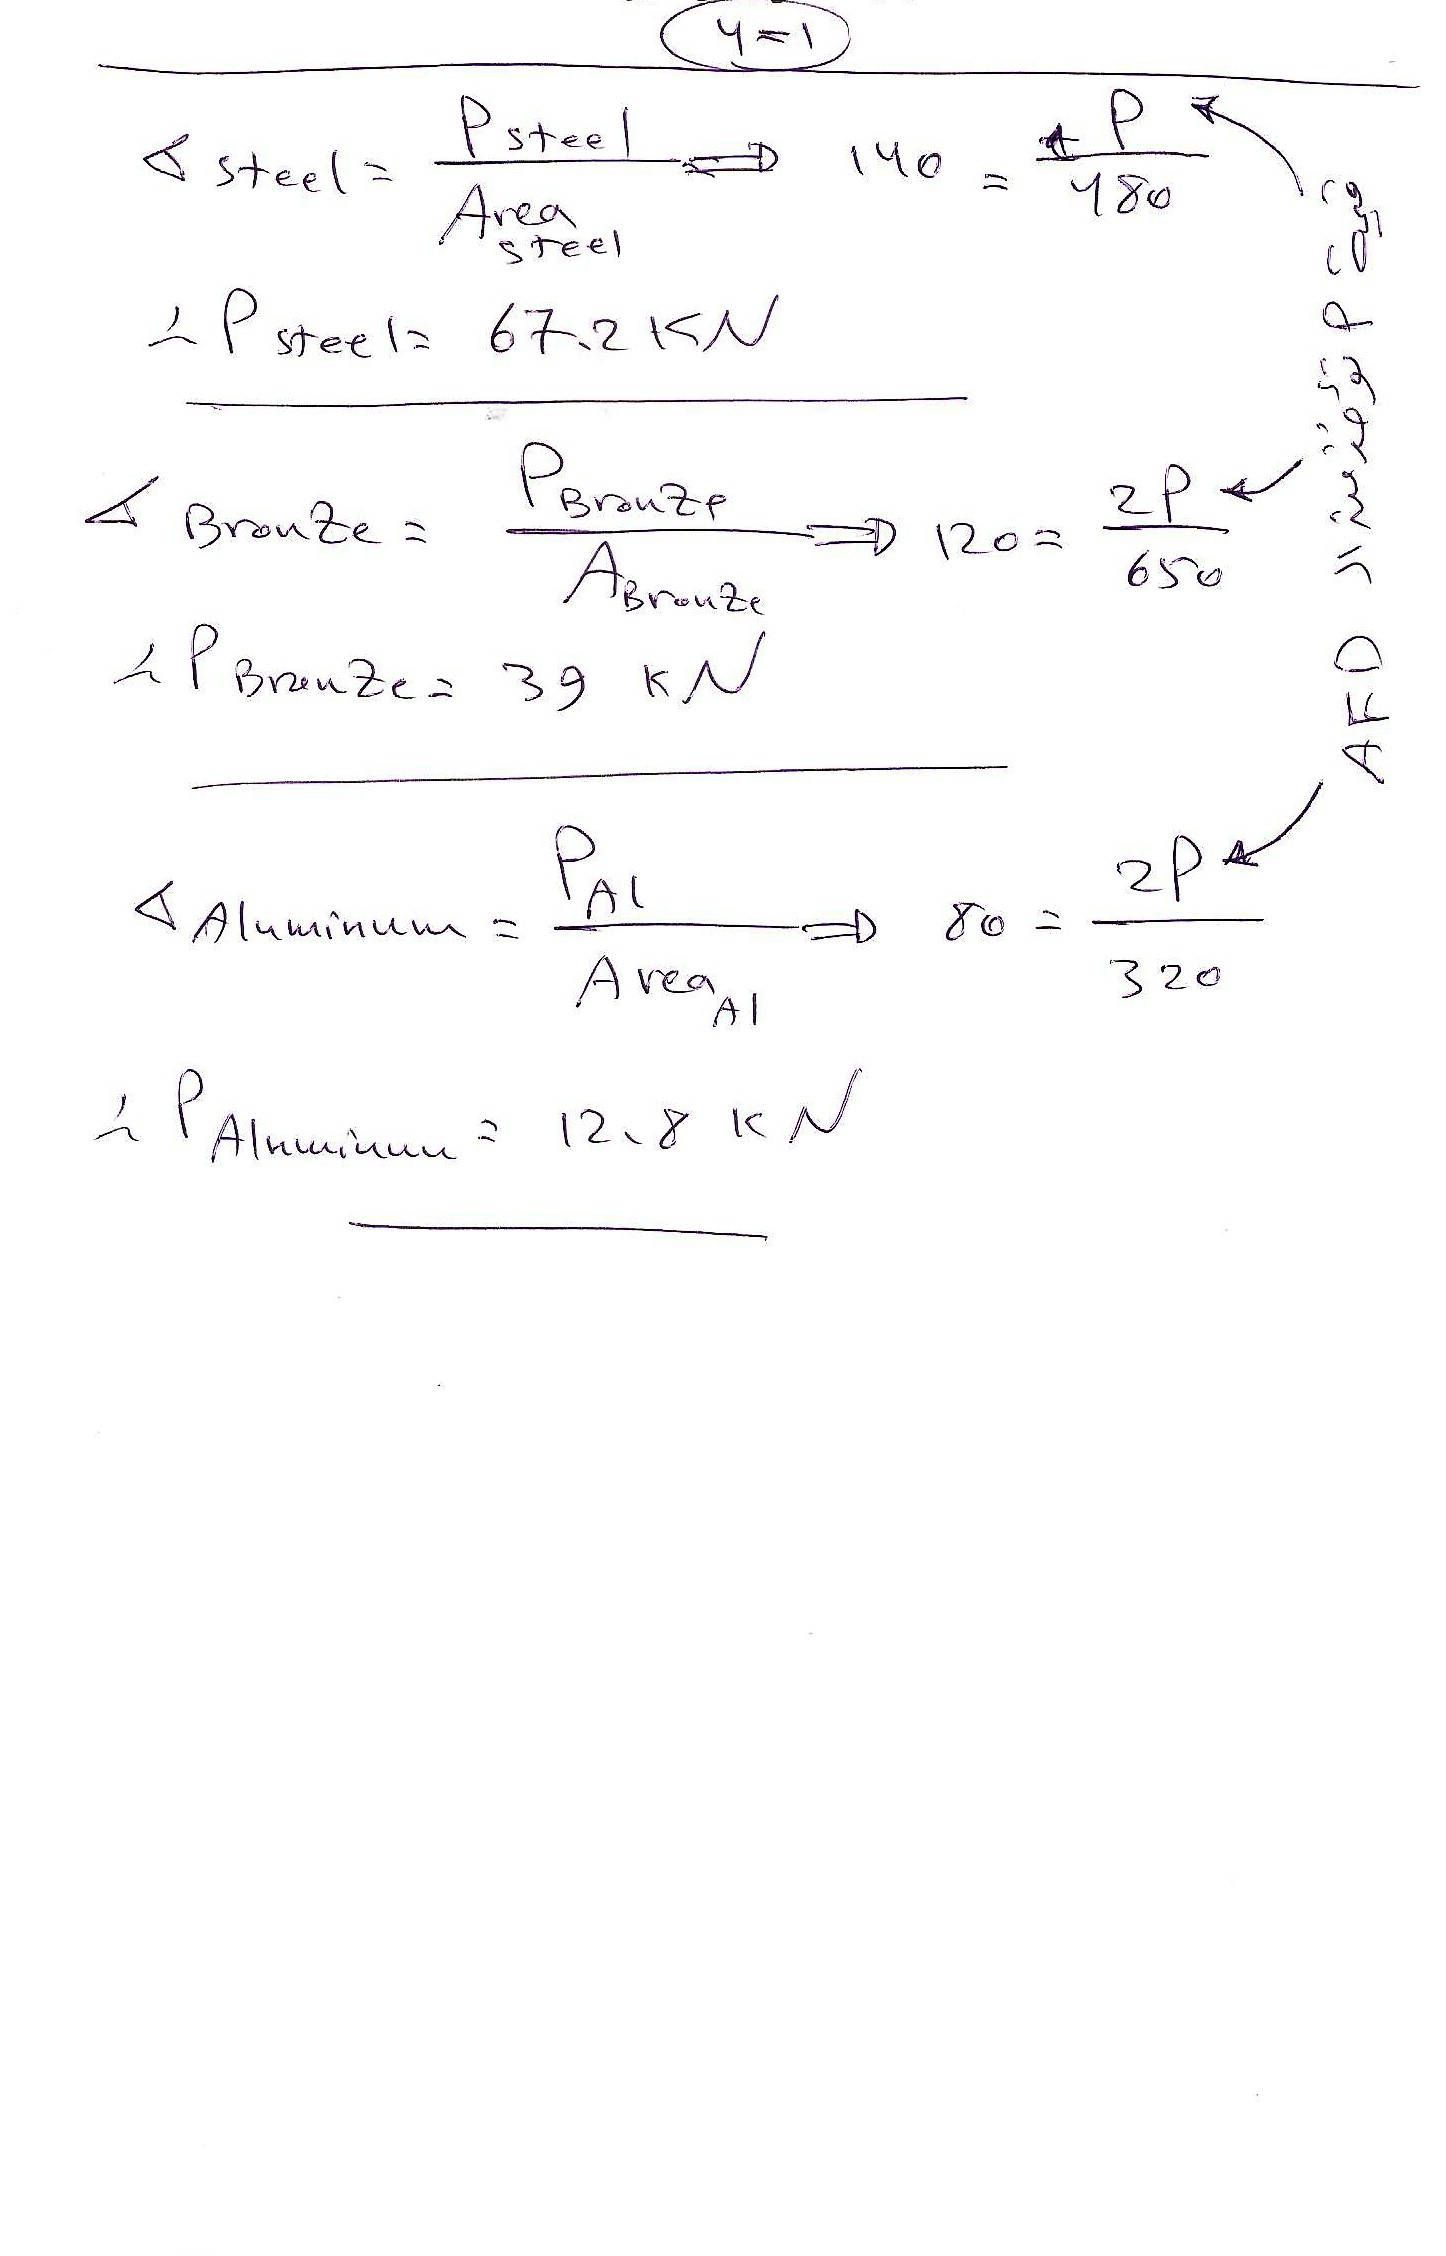 4=1
σ steel = P steel / Area steel ⇒ 140 = P / 480
∴ P steel = 67.2 KN
σ Bronze = P Bronze / A Bronze ⇒ 120 = 2P / 650
∴ P Bronze = 39 KN
σ Aluminum = P Al / Area Al ⇒ 80 = 2P / 320
∴ P Aluminum = 12.8 KN
AFD P